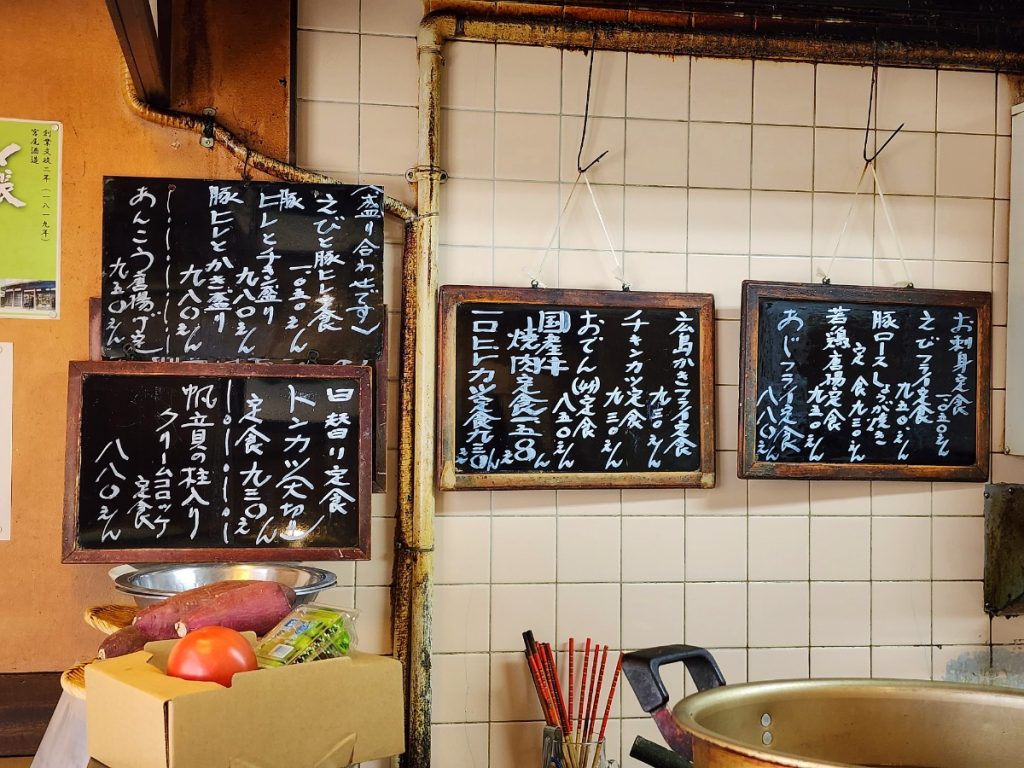 お刺身定食
一〇五〇えん
えびフライ定食
九五〇えん
豚ロースしょうが焼き
定食九三〇えん
若鶏唐揚定食
九五〇えん
あじフライ定食
八八〇えん
広島かきフライ定食
九三〇えん
チキンカツ定食
九三〇えん
おでん(小)定食
八五〇えん
国産牛
焼肉定食一一五〇えん
一口ヒレカツ定食九三〇えん
〈盛り合わせです〉
えびと豚ヒレ定食
一〇五〇えん
豚ヒレとチキン盛り
九八〇えん
豚ヒレとかき盛り
九八〇えん
あんこう唐揚げ定
九五〇えん
日替り定食
トンカツ(大切り)
定食九三〇えん
帆立貝の柱入り
クリームコロッケ
定食
八八〇えん
創業文政二年(一八一九年)
宮尾酒造